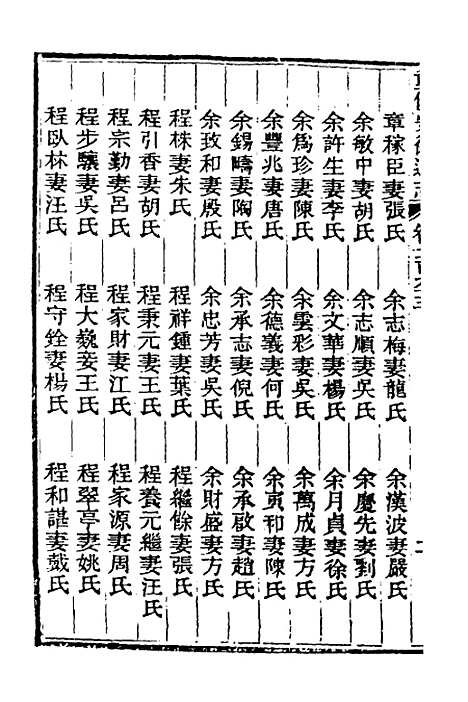 章稼臣妻張氏
余志梅妻龍氏
余漢波妻嚴氏
余敏中妻胡氏
余志順妻吳氏
余慶先妻劉氏
余許生妻李氏
余文華妻楊氏
余月貞妻徐氏
余爲珍妻陳氏
余雲彩妻吳氏
余萬成妻方氏
余豐兆妻唐氏
余德義妻何氏
余寅卭妻陳氏
余錫疇妻陶氏
余承志妻倪氏
余承啟妻趙氏
余致和妻殷氏
余忠芳妻吳氏
余財盛妻方氏
程株妻朱氏
程祥鍾妻葉氏
程繼餘妻張氏
程引香妻胡氏
程秉元妻王氏
程養元繼妻汪氏
程宗勤妻呂氏
程家財妻江氏
程家源妻周氏
程步驤妻吳氏
程大巍妾王氏
程翠亭妻姚氏
程臥林妻汪氏
程守銓妻楊氏
程和諶妻戴氏